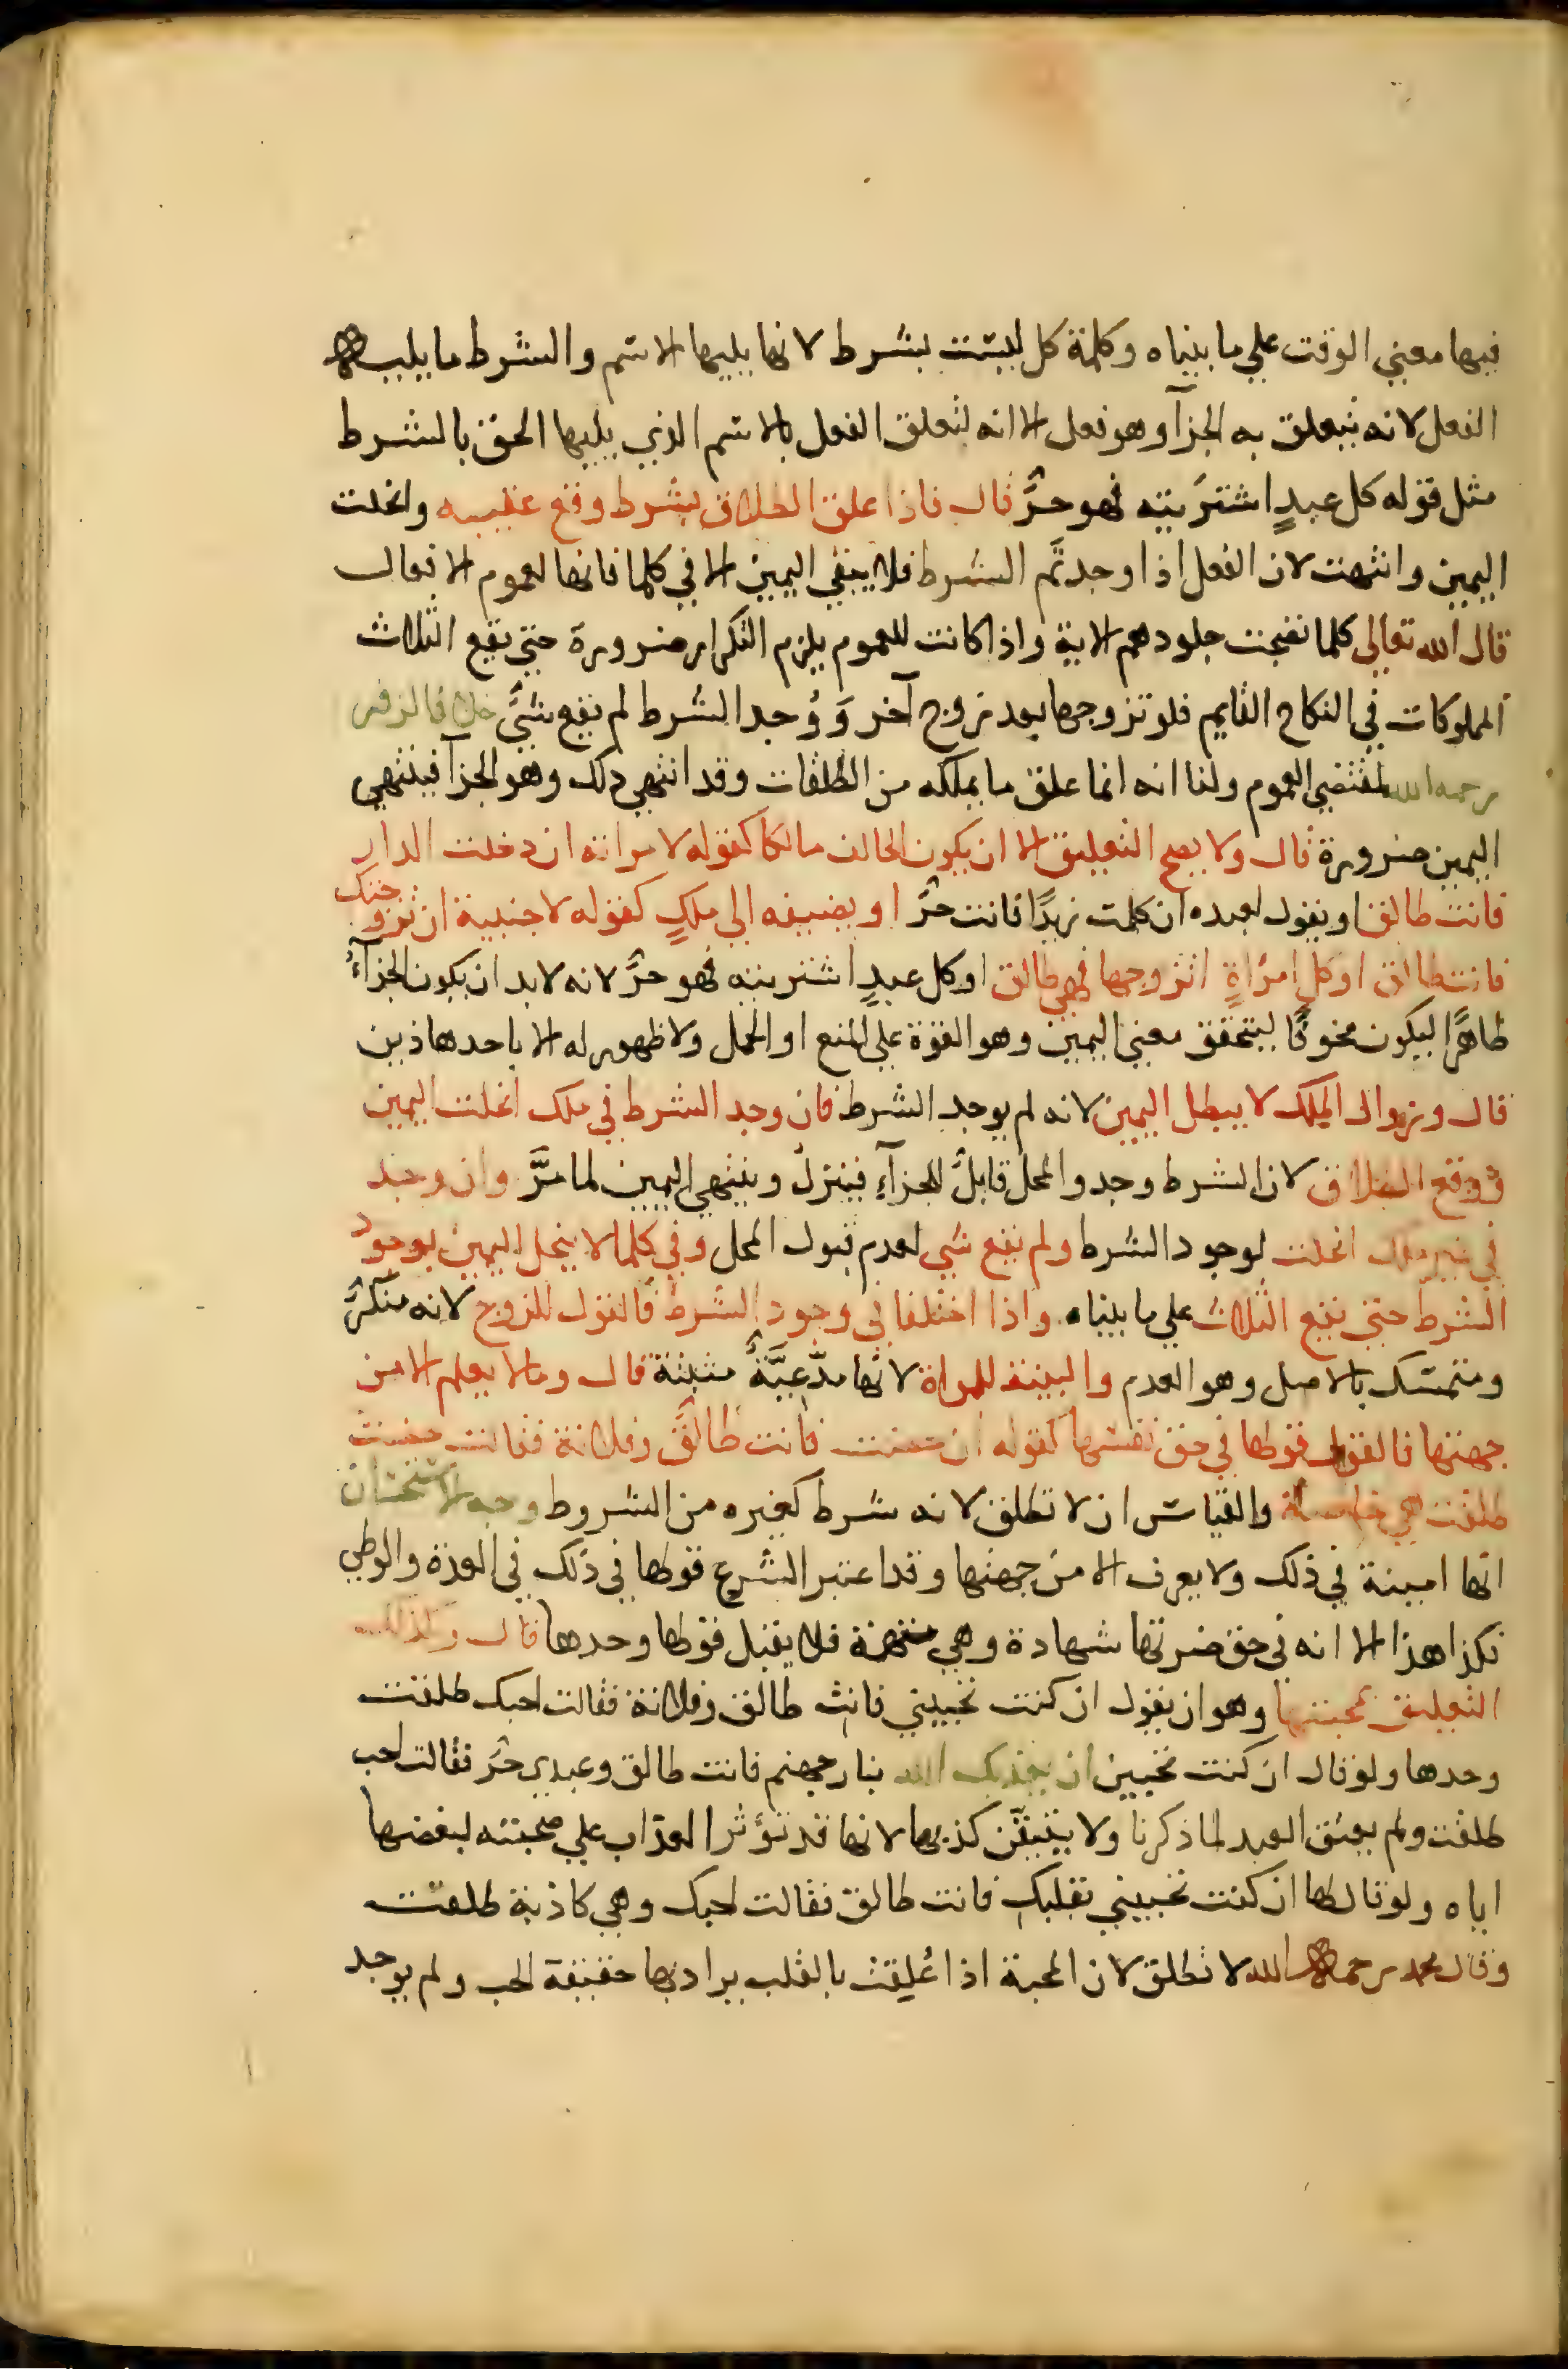 فيها معني الوقت علي ما بيناه وكلمة كل ليست بشرط لانها يليها الاسم والشرط ما يليه
الفعل لانه يتعلق به الجزآ وهو فعل الا انه لتعلق الفعل بالاسم الذي يليها الحق بالشرط
مثل قوله كل عبدٍ اشتريته فهو حرٌّ قال فاذا علق الطلاق بشرط وقع عقيبه وانحلت
اليمين وانتهت لان الفعل اذا وجد تم الشرط فلا يبقي اليمين الا في كلما فانها لعموم الافعال
قال الله تعالي كلما نضجت جلودهم الاية واذا كانت للعموم يلزم التكرار ضرورة حتي يقع الثلاث
المملوكات في النكاح القايم فلو تزوجها بعد زوج آخر وَوُجد الشرط لم يقع شيٌ خلافا لزفر
رحمه الله لمقتضي العموم ولنا انه انما علق ما يملكه من الطلقات وقد انتهي ذلك وهو الجزآ فينتهي
اليمين ضرورة قال ولا يصح التعليق الا ان يكون الحالف مالكا كقوله لامراته ان دخلت الدار
فانت طالق او يقول لعبده ان كلمت زيدًا فانت حرٌّ او يضيفه الي ملكٍ كقوله لاجنبية ان تزوجتك
فانت طالق او كل امرأةٍ اتزوجها فهي طالق او كل عبدٍ اشتريته فهو حرٌّ لانه لابد ان يكون الجزآءُ
ظاهرًا ليكون مخوفًا ليتحقق معني اليمين وهو القوة علي المنع او الحمل ولا ظهور له الا باحد هاذين
قال وزوال الملك لا يبطل اليمين لانه لم يوجد الشرط فان وجد الشرط في ملك انحلت اليمين
ووقع الطلاق لان الشرط وجد والمحل قابلٌ للجزآءِ فينزل وينتهي اليمين لما مرَّ وان وجد
في غير ملك انحلت لوجود الشرط ولم يقع شي لعدم قبول المحل وفي كلما لا ينحل اليمين بوجود
الشرط حتي يقع الثلاث علي ما بيناه واذا اختلفا في وجود الشرط فالقول للزوج لانه منكرٌ
ومتمسك بالاصل وهو العدم والبينة للمراة لانها مدّعيَّةٌ مثبتة قال وما لا يعلم الا من
جهتها فالقول قولها في حق نفسها كقوله ان حضت فانت طالقٌ وفلانة فقالت حضت
طلقت هي خاصة والقياس ان لا تطلق لانه شرط كغيره من الشروط وجه الاستحسان
انها امينة في ذلك ولا يعرف الا من جهتها وقد اعتبر الشرع قولها في ذلك في العدة والوطي
فكذا هذا الا انه في حق ضرتها شهادة وهي متهمة فلا يقبل قولها وحدها قال وكذلك
التعليق بمحبتها وهو ان يقول ان كنت تحبيني فانت طالق وفلانة فقالت احبك طلقت
وحدها ولو قال ان كنت تحبين ان يعذبك الله بنار جهنم فانت طالق وعبدي حرٌّ فقالت احب
طلقت ولم يعتق العبد لما ذكرنا ولا يتيقّن كذبها لانها قد تؤثر العذاب علي صحبته لبغضها
اياه ولو قال لها ان كنت تحبيني بقلبك فانت طالق فقالت احبك وهي كاذبة طلقت
وقال محمد رحمه الله لا تطلق لان المحبة اذا عُلِقت بالقلب يراد بها حقيقة الحب ولم يوجد